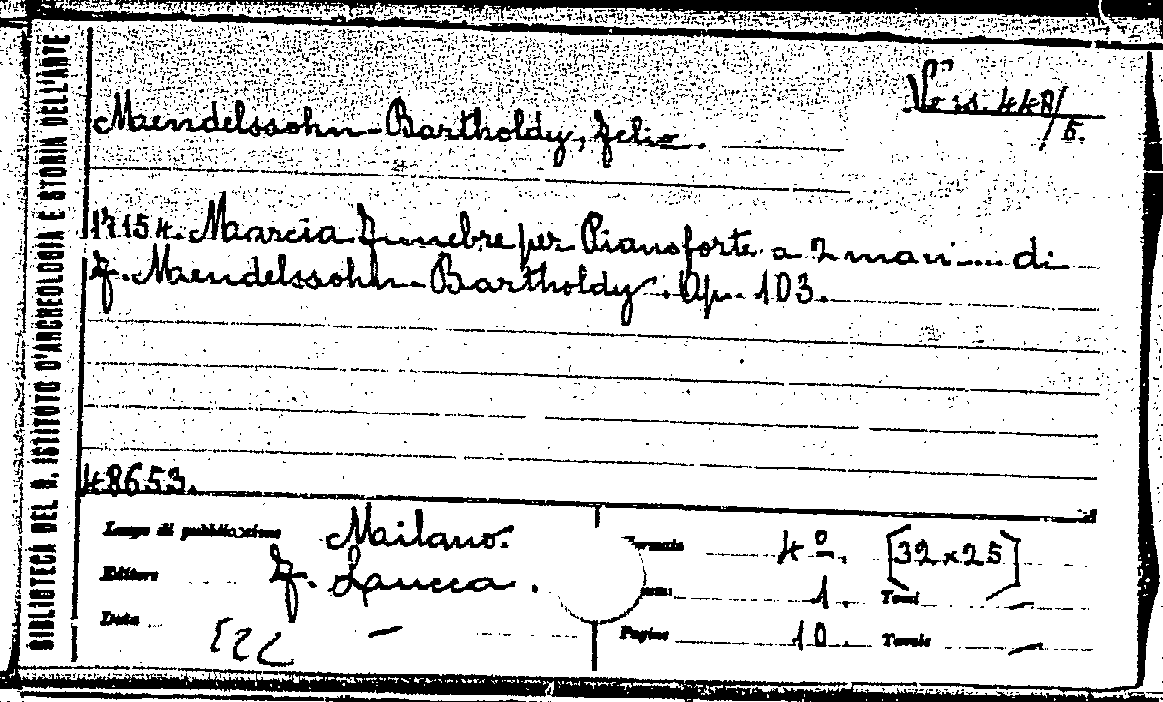 BIBLIOTECA DEL R. ISTITUTO D'ARCHEOLOGIA E STORIA DELL'ARTE
Vo is. 448/5.
Mendelssohn-Bartholdy, Felix.
17154. Marcia Funebre per Pianoforte a 2 mani.... di
F. Mendelssohn-Bartholdy. Op. 103.
48653.
Luogo di pubblicazione Milano. Formato 4º. [32x25]
Editore F. Lucca. 1. Tomi –
Data – Pagine 10. Tavole –